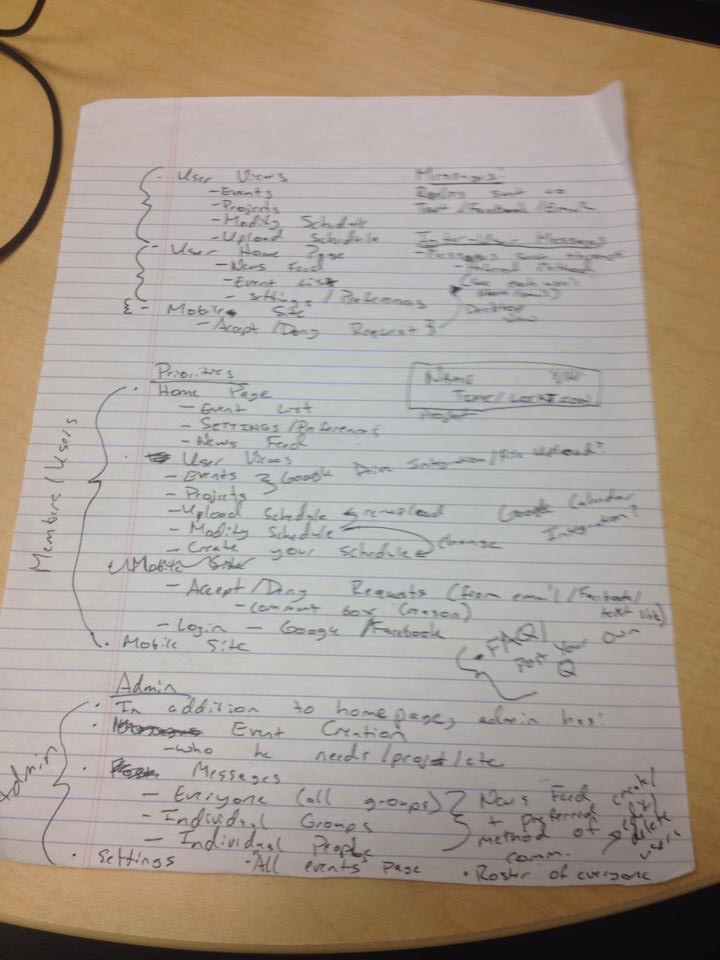 User Views
- Events
- Projects
- Modify Schedule
- Upload Schedule
- User Home Page
- News Feed
- Event List
- Settings / Preferences
- Mobile Site
- Accept / Deny Request
Messages:
Text / Facebook / Email
Inter-User Messages
Priorities
Members/Users
· Home Page
- Event List
- SETTINGS/Preferences
- News Feed
· User Views
- Events
Google Drive Integration/File Upload?
- Projects
- Upload Schedule re-upload
- Modify Schedule
- Create your schedule change
Google Calendar
Integration?
NAME
TIME/LOCATION
Mobile Site
- Accept/Deny Requests (from email/Facebook/
text link)
- comment box (reason)
- Login - Google/Facebook
· Mobile Site
FAQ/
post your own
Q
Admin
Admin
· In addition to homepage, admin has:
· Event Creation
- who he needs/project/etc
· Messages
- Everyone (all groups)
- Individual Groups
- Individual People
News Feed
+ preferred
method of
comm.
create/
edit/
delete
· Settings
· All events page
· Roster of everyone